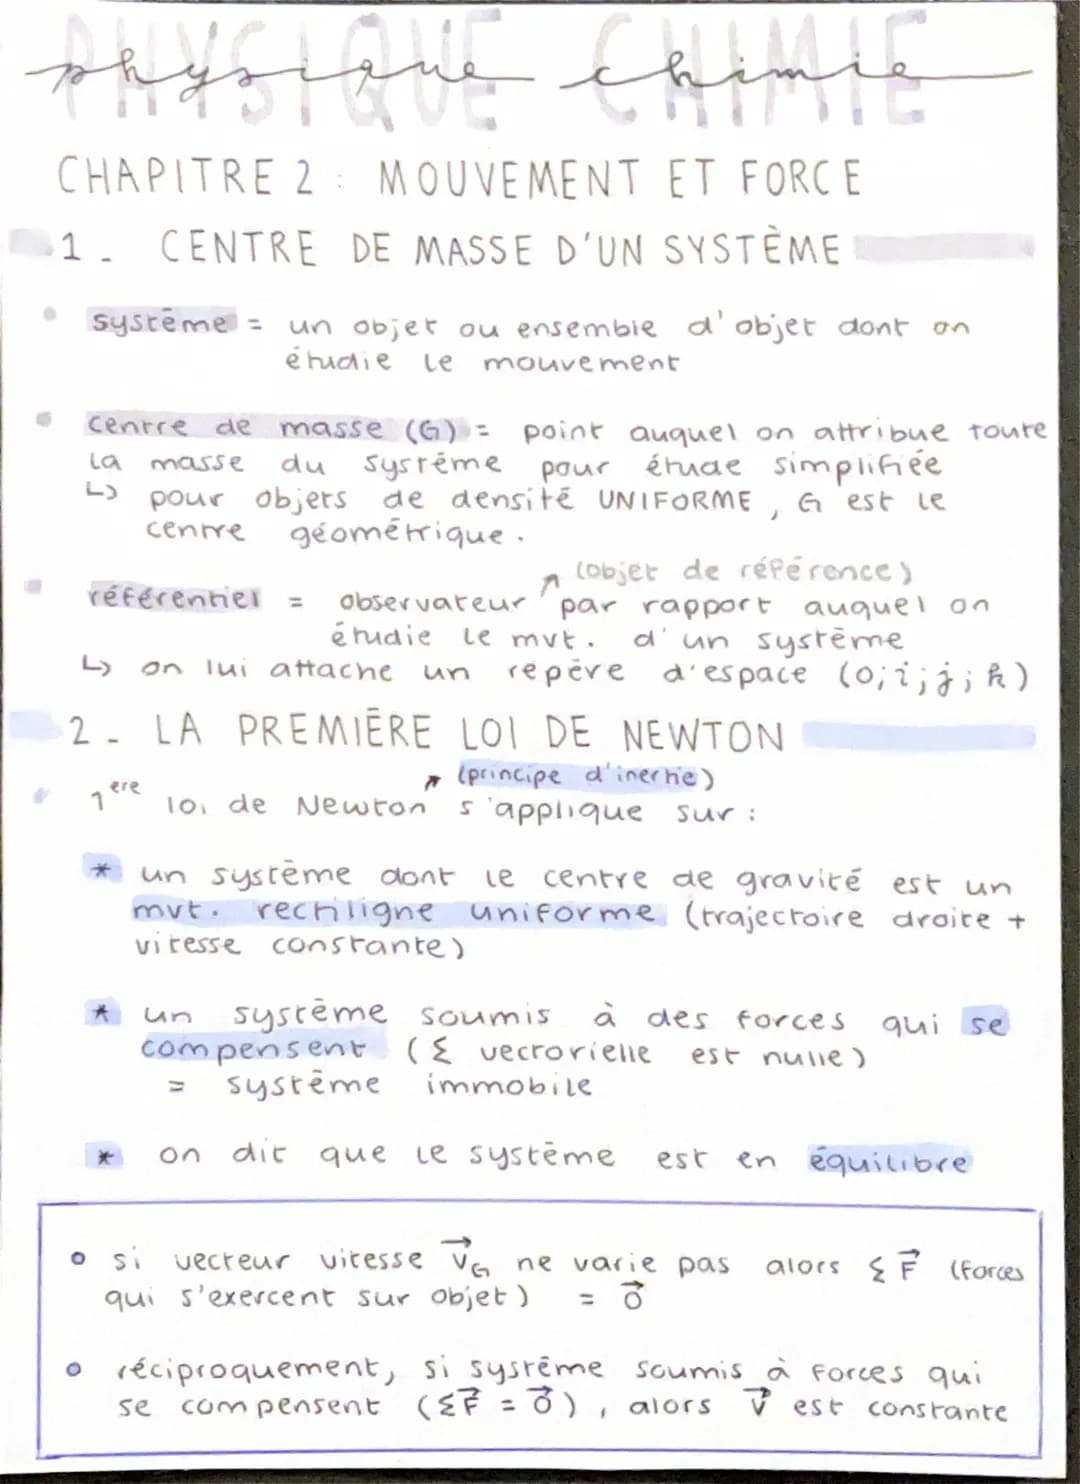 PHYSIQUE CHIMIE
physique chimie
CHAPITRE 2 : MOUVEMENT ET FORCE
1. CENTRE DE MASSE D'UN SYSTÈME
• système = un objet ou ensemble d'objet dont on
étudie le mouvement
• centre de masse (G) = point auquel on attribue toute
la masse du système pour étude simplifiée
↳ pour objets de densité UNIFORME, G est le
centre géométrique.
↗ (objet de référence)
• référentiel = observateur par rapport auquel on
étudie le mvt. d'un système
↳ on lui attache un repère d'espace (0;i;j;k)
2. LA PREMIÈRE LOI DE NEWTON
↗ (principe d'inertie)
• 1ère loi de Newton s'applique sur :
* un système dont le centre de gravité est un
mvt. rectiligne uniforme (trajectoire droite +
vitesse constante)
* un système soumis à des forces qui se
compensent (Σ vectorielle est nulle)
= système immobile
* on dit que le système est en équilibre
• si vecteur vitesse V⃗G ne varie pas alors Σ F⃗ (forces
qui s'exercent sur objet) = 0⃗
• réciproquement, si système soumis à forces qui
se compensent (ΣF⃗ = 0⃗), alors V⃗ est constante